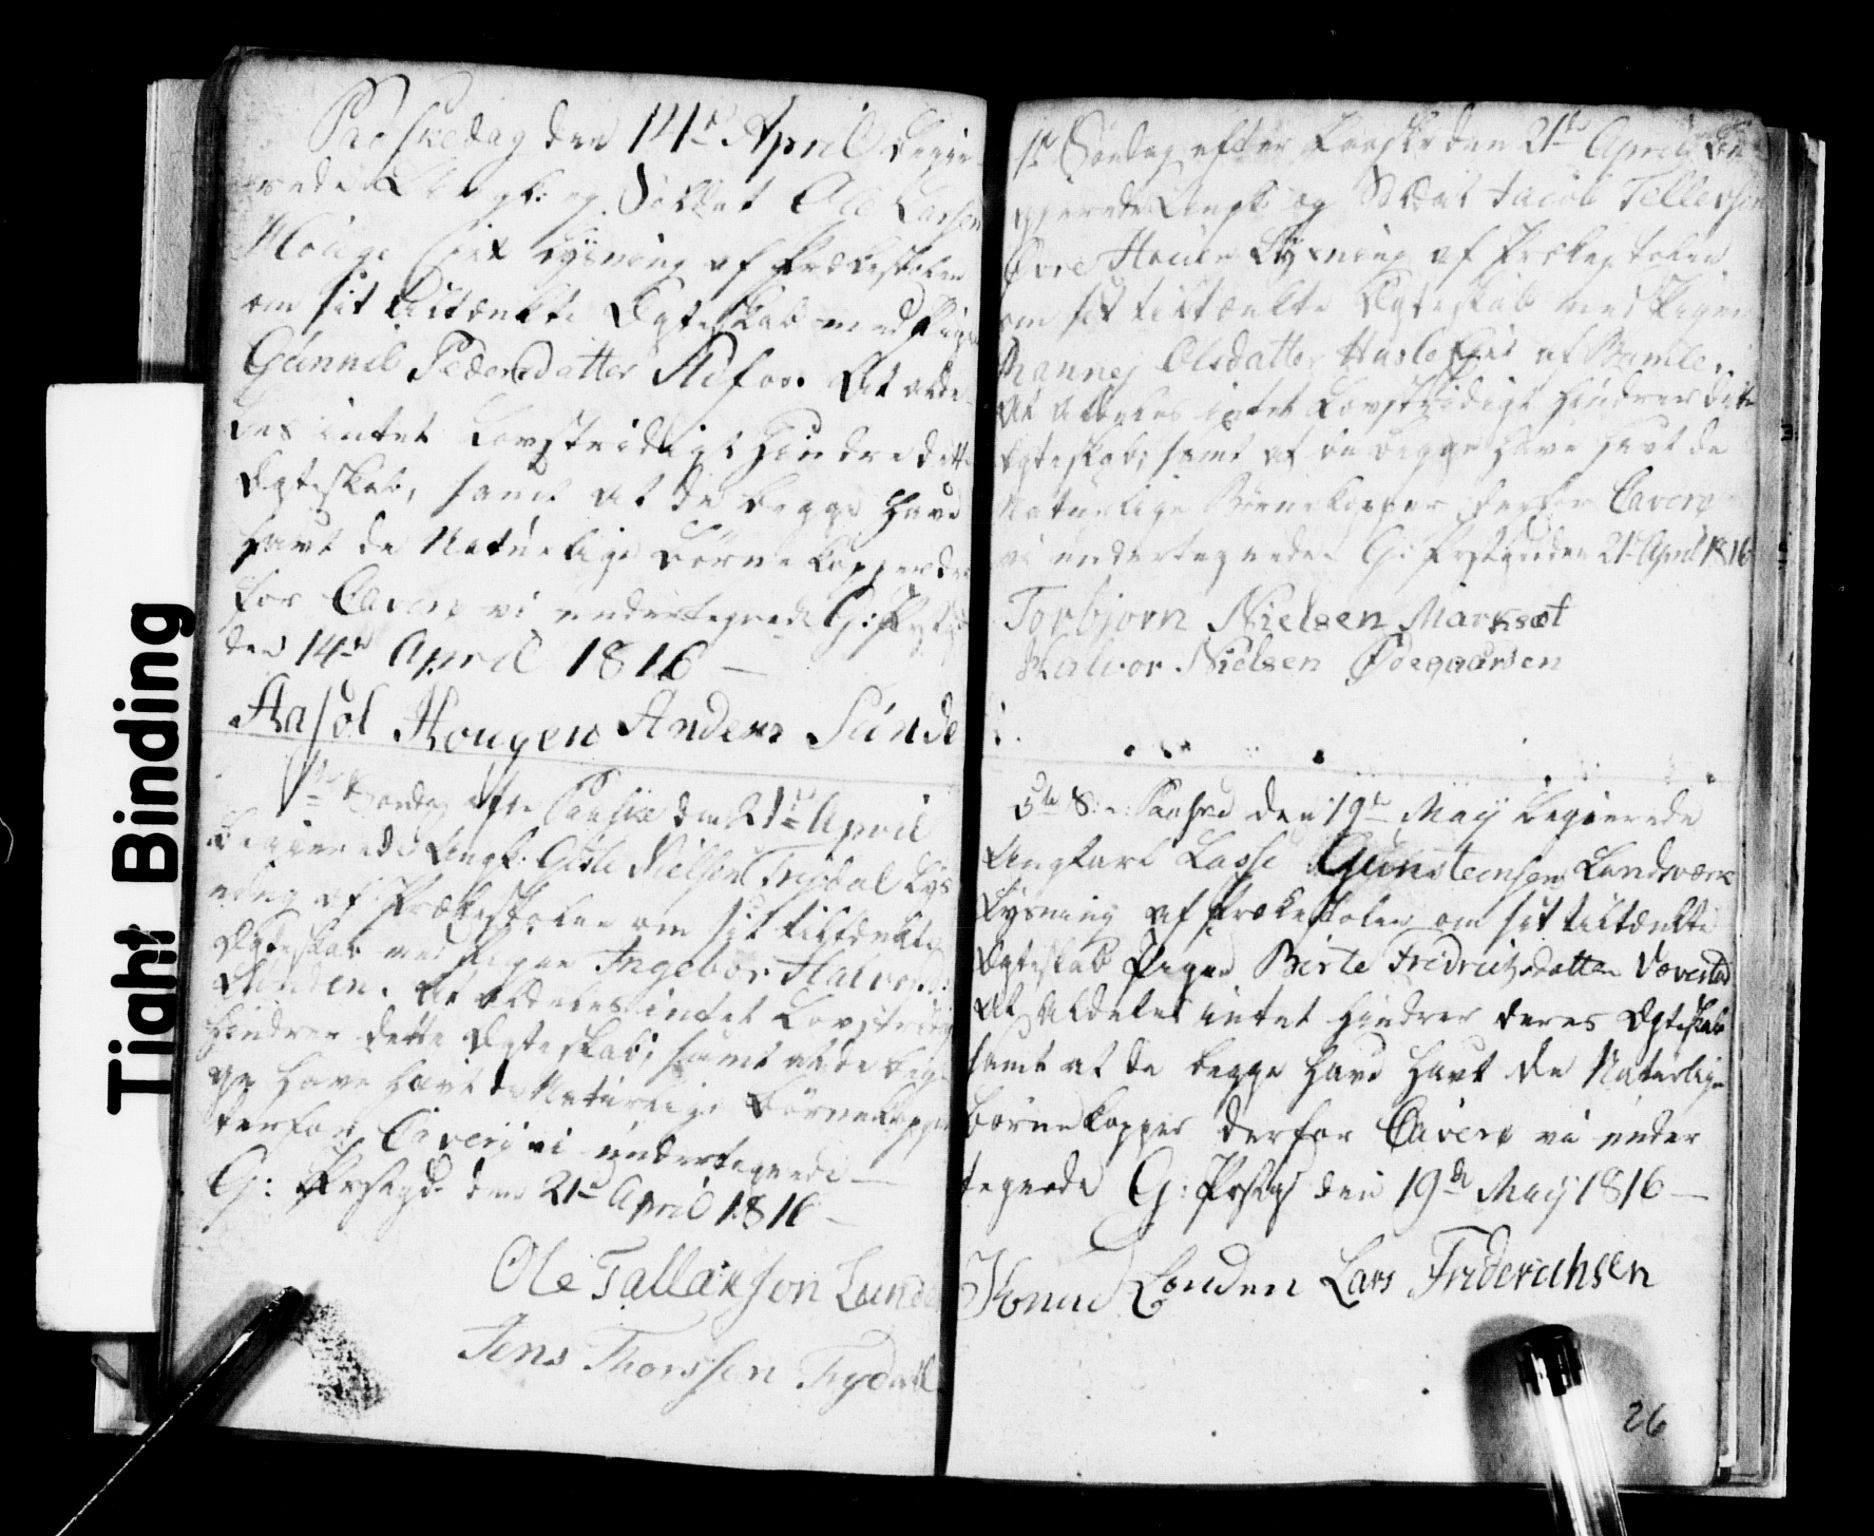 Paaskedag den 14de April begie-
rede Ungk: og Soldat Ole Larsen
Houge sit Lysning af Prækestolen
om sit tiltænkte Ægteskab med Pigen
Gunnil Pedersdatter Aafos. At alde-
les intet Lovstridigt hindrer dette
Ægteskab, samt at de begge have
havt de Naturlige Børnekopper der-
for Cavere vi undertegnede G: Prstgd
den 14de April 1816 —
Aasol Hougen Anders Sunde
1ste Søndag efter Paaske den 21de April
begierede Ungk: Gisle Nielsen Frydal Lys-
ning af Prækestolen om sit tiltænkte
Ægteskab med Pigen Ingebor Halvorsd:
Lunden. At aldeles intet Lovstridig
hindrer dette Ægteskab; samt at de beg-
ge have havt de Naturlige Børnekopper
derfor Cavere vi undertegnede —
G: Prstgd. den 21de April 1816 —
Ole Tallakson Lunde
Jens Thorssen Frydahl
1ste Søndag efter Paaske den 21de April be-
gjerede Ungk: og Soldat Jacob Tellevsen
Øvre Houen Lysning af Prækestolen
om sit tiltænkte Ægteskab med Pigen
Rannej Olsdatter Hasle af Bamle.
At aldeles intet Lovstridigt hindrer dette
Ægteskab; samt at de begge have havt de
Naturlige Børnekopper derfor Cavere
vi undertegnede G: Prstgd den 21de April 1816
Torbjørn Nielsen Marksæt
Halvor Nielsen Ødegaarden
5te S: e: Paaske den 19de May begierede
Ungkarl Lasse Gunsteensen Landværk
Lysning af Prækestolen om sit tiltænkte
Ægteskab Pigen Birte Fredrichsdatter
At aldeles intet hindrer deres Ægteskab
samt at de begge have havt de Naturlige
børnekopper derfor Cavere vi under
tegnede G: Prstg den 19de May 1816 —
Knud Londen Lars Friderichsen
26
Tight Binding